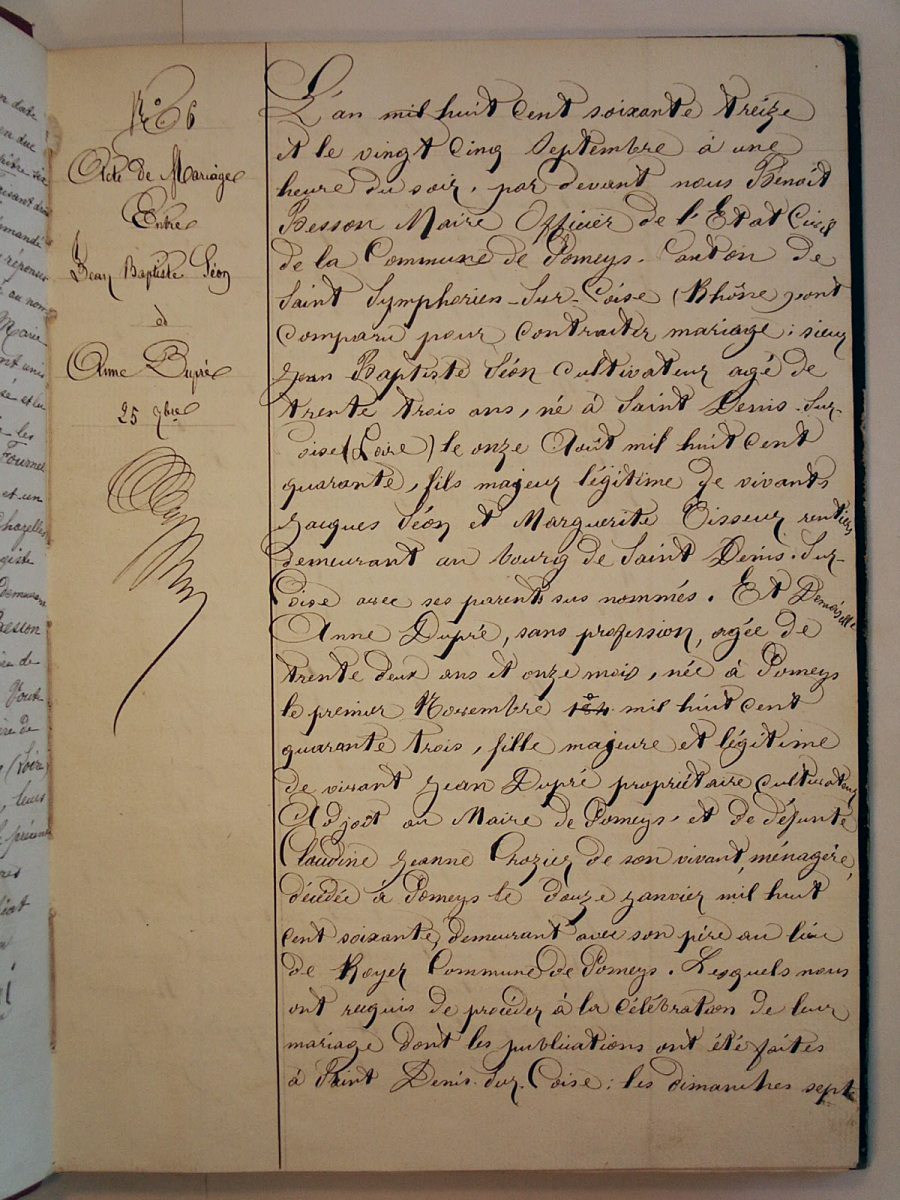 N° 6
Acte de Mariage
Entre
Jean Baptiste Séon
et
Anne Dupré
25 7bre
L'an mil huit cent soixante treize
et le vingt cinq Septembre à une
heure du soir, par devant nous Benoît
Besson Maire Officier de l'Etat Civil
de la Commune de Pomeys. Canton de
Saint Symphorien-Sur-Coise (Rhône) ont
comparu pour contracter mariage : sieur
Jean Baptiste Séon cultivateur agé de
trente trois ans, né à Saint Denis-Sur-
Coise (Loire) le onze Août mil huit cent
quarante, fils majeur légitime de vivants
Jacques Séon et Marguerite Tisseur rentiers
demeurant au bourg de Saint Denis-Sur-
Coise avec ses parents sus nommés. Et Demoiselle
Anne Dupré, sans profession, agée de
trente deux ans et onze mois, née à Pomeys
le premier Novembre mil huit cent
quarante trois, fille majeure et légitime
de vivant Jean Dupré propriétaire cultivateur
Adjoit au Maire de Pomeys, et de défunte
Claudine Jeanne Crozier de son vivant ménagère,
décédée à Pomeys le douze janvier mil huit
cent soixante, demeurant avec son père au lieu
de Royer Commune de Pomeys. Lesquels nous
ont requis de procéder à la célébration de leur
mariage dont les publications ont été faites
à Saint Denis-Sur-Coise : les dimanches sept